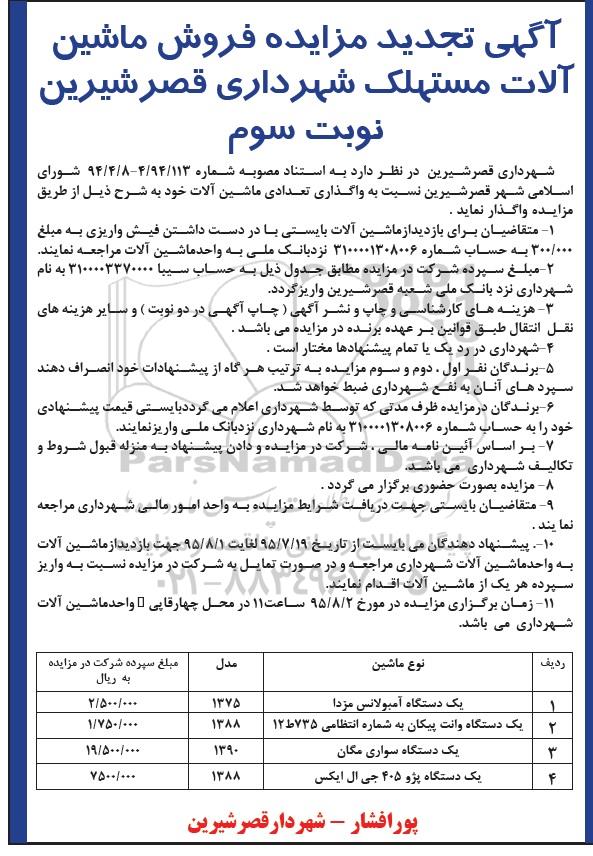 آگهی تجدید مزایده فروش ماشین
آلات مستهلک شهرداری قصرشیرین
نوبت سوم
شهرداری قصرشیرین در نظر دارد به استناد مصوبه شماره ۴/۹۴/۱۱۳-۹۴/۴/۸ شورای
اسلامی شهر قصرشیرین نسبت به واگذاری تعدادی ماشین آلات خود به شرح ذیل از طریق
مزایده واگذار نماید .
۱- متقاضیان برای بازدیدازماشین آلات بایستی با در دست داشتن فیش واریزی به مبلغ
۳۰۰/۰۰۰ به حساب شماره ۳۱۰۰۰۰۱۳۰۸۰۰۶ نزدبانک ملی به واحدماشین آلات مراجعه نمایند.
۲-مبلغ سپرده شرکت در مزایده مطابق جدول ذیل به حساب سیبا ۳۱۰۰۰۰۳۳۷۰۰۰۰ به نام
شهرداری نزد بانک ملی شعبه قصرشیرین واریزگردد.
۳- هزینه های کارشناسی و چاپ و نشر آگهی ( چاپ آگهی در دو نوبت ) و سایر هزینه های
نقل انتقال طبق قوانین بر عهده برنده در مزایده می باشد .
۴-شهرداری در رد یک یا تمام پیشنهادها مختار است .
۵-برندگان نفر اول ، دوم و سوم مزایده به ترتیب هر گاه از پیشنهادات خود انصراف دهند
سپرد های آنان به نفع شهرداری ضبط خواهد شد.
۶-برندگان درمزایده ظرف مدتی که توسط شهرداری اعلام می گرددبایستی قیمت پیشنهادی
خود را به حساب شماره ۳۱۰۰۰۰۱۳۰۸۰۰۶ به نام شهرداری نزدبانک ملی واریزنمایند.
۷- بر اساس آئین نامه مالی ، شرکت در مزایده و دادن پیشنهاد به منزله قبول شروط و
تکالیف شهرداری می باشد.
۸- مزایده بصورت حضوری برگزار می گردد .
۹- متقاضیان بایستی جهت دریافت شرایط مزایده به واحد امور مالی شهرداری مراجعه
نما یند .
۱۰-. پیشنهاد دهندگان می بایست از تاریخ ۹۵/۷/۱۹ لغایت ۹۵/۸/۱ جهت بازدیدازماشین آلات
به واحدماشین آلات شهرداری مراجعه و در صورت تمایل به شرکت در مزایده نسبت به واریز
سپرده هر یک از ماشین آلات اقدام نمایند.
۱۱- زمان برگزاری مزایده در مورخ ۹۵/۸/۲ ساعت۱۱ در محل چهارقاپی واحدماشین آلات
شهرداری می باشد.
ردیف نوع ماشین مدل مبلغ سپرده شرکت در مزایده
به ریال
۱ یک دستگاه آمبولانس مزدا ۱۳۷۵ ۲/۵۰۰/۰۰۰
۲ یک دستگاه وانت پیکان به شماره انتظامی ۷۳۵ط۱۲ ۱۳۸۸ ۱/۷۵۰/۰۰۰
۳ یک دستگاه سواری مگان ۱۳۹۰ ۱۹/۵۰۰/۰۰۰
۴ یک دستگاه پژو ۴۰۵ جی ال ایکس ۱۳۸۸ ۷۵۰۰/۰۰۰
پورافشار - شهردارقصرشیرین
ParsNamadData